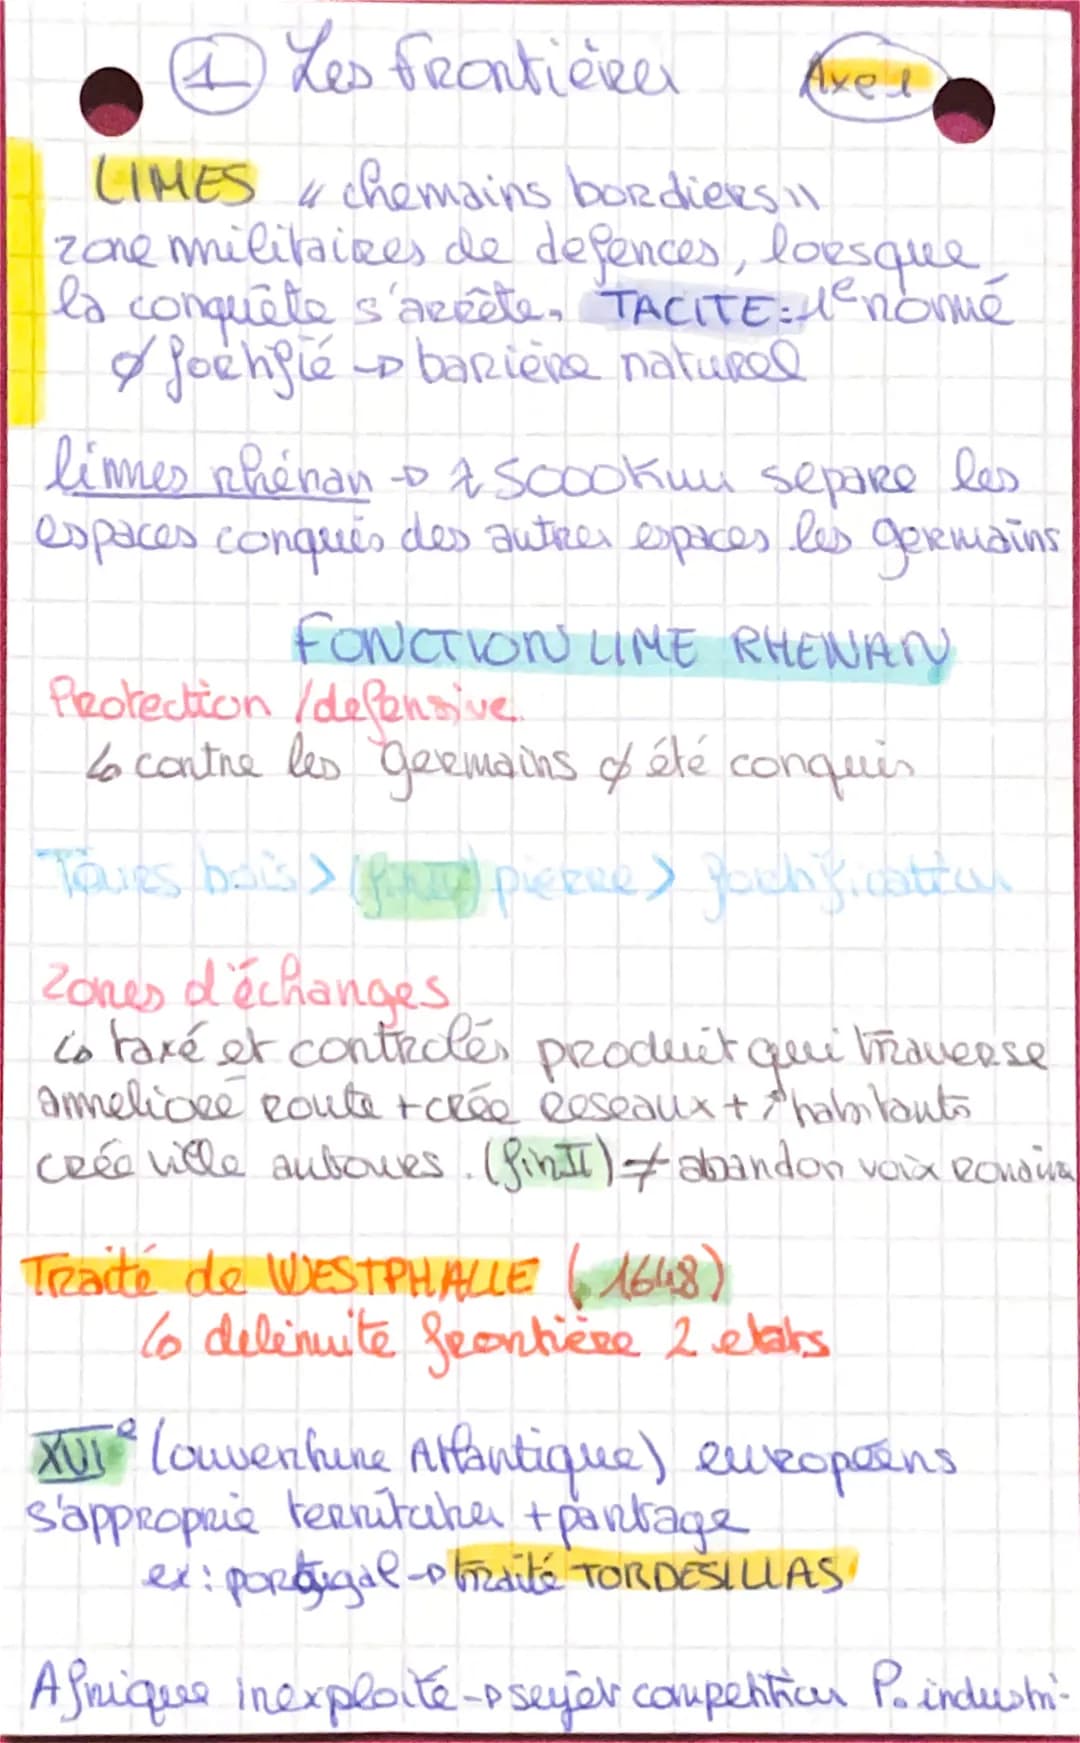 1 Les frontières Axe 1
LIMES "chemains bordiers"
zone militaires de défences, lorsque
la conquête s'arrête. TACITE: 1e nommé
∅ fortifié → barière naturel
limes rhénan → ≈ 5000 Km sépare les
espaces conquis des autres espaces les germains
FONCTION LIME RHENAN
Protection / défensive.
↳ contre les germains ∅ été conquis
Tours bois > pierre > fortification
Zones d'échanges
↳ taxé et controlés produit qui traverse
amméliorée route + crée réseaux + ↗ habitants
crée ville autours. (fin II) ≠ abandon voix romaine
Traité de WESTPHALLE (1648)
↳ délémite frontière 2 etats
XVIe (ouverture Atlantique) européens
s'approprie territoires + partage
ex: portugal → traité TORDESILLAS
Afrique inexploité → sujet compétition P. industri-